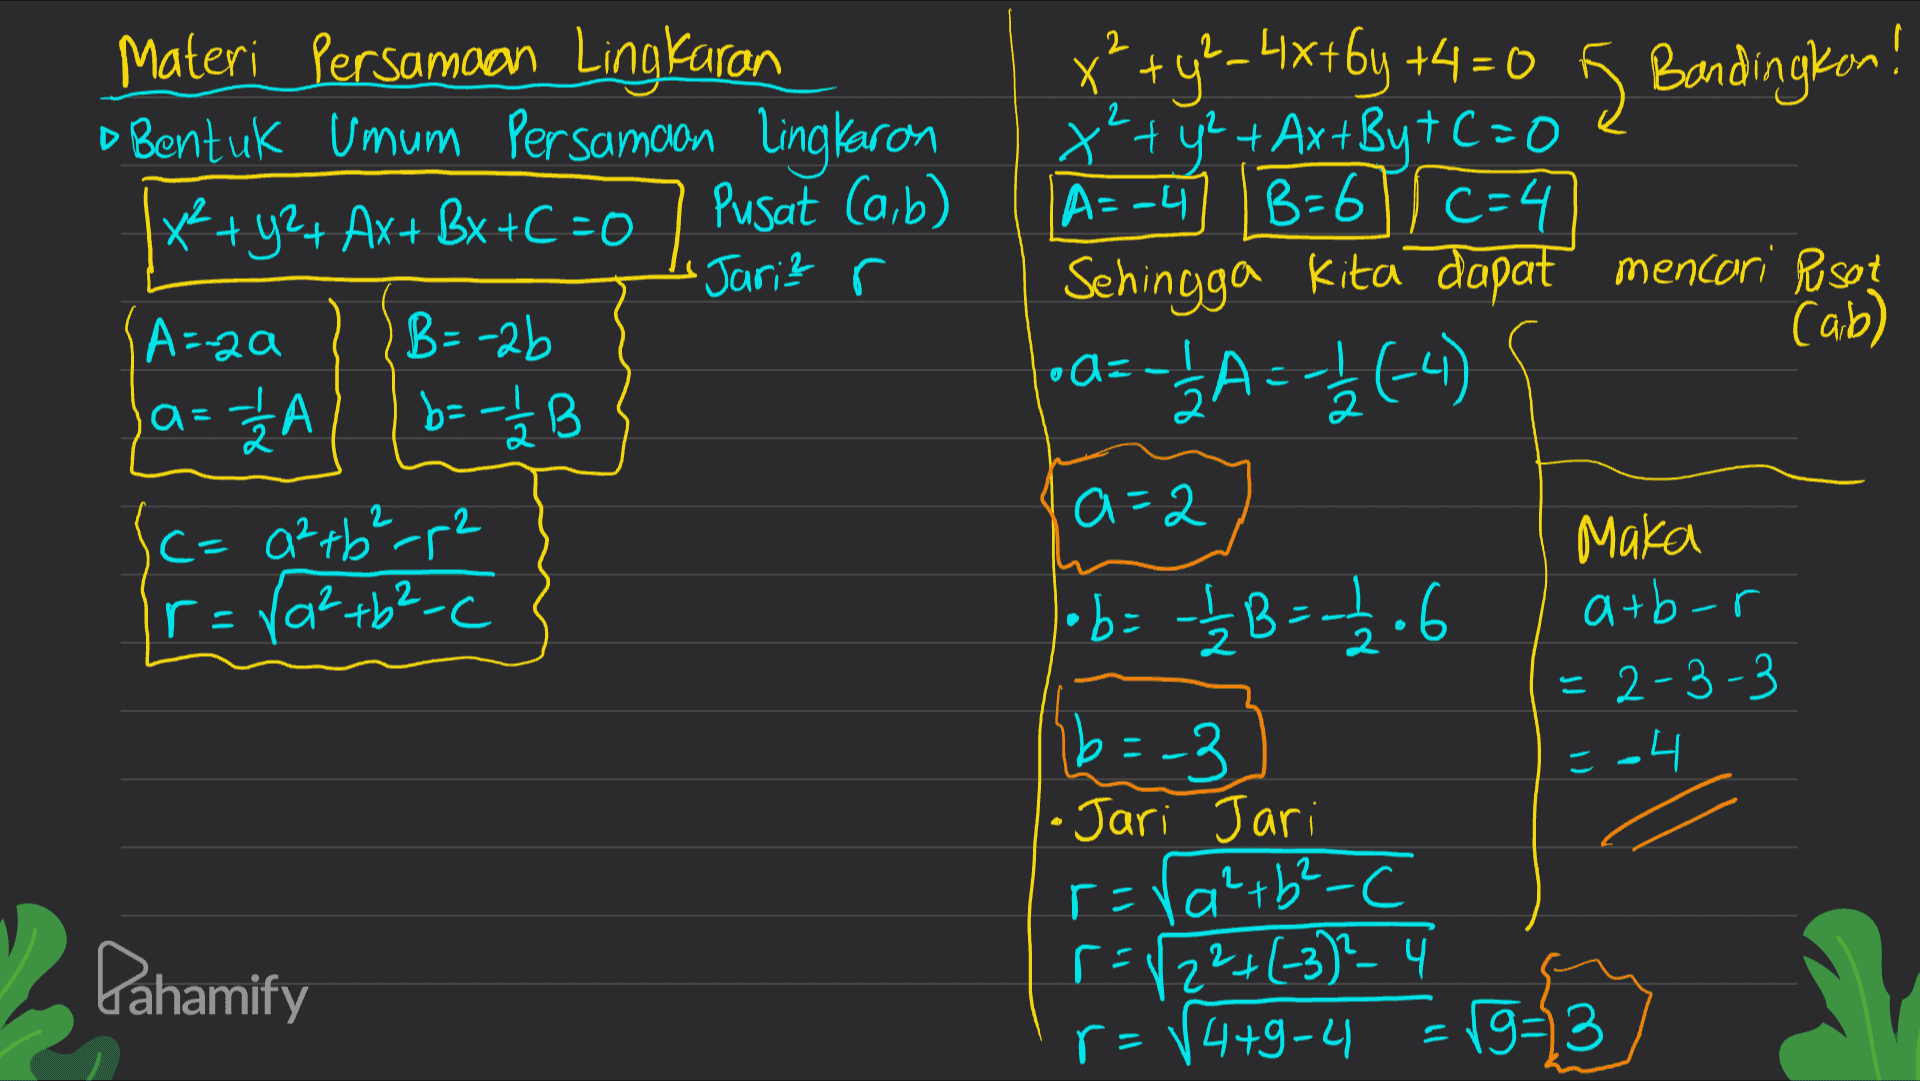 Materi Persamaan Lingkaran
▷ Bentuk Umum Persamaan lingkaran
x² + y² + Ax + Bx + C = 0
Pusat (a,b)
Jari² r
A = -2a
a = -1/2 A
B = -2b
b = -1/2 B
C = a² + b² - r²
r = √(a² + b² - C)
x² + y² - 4x + 6y + 4 = 0 Bandingkan!
x² + y² + Ax + By + C = 0
A = -4 B = 6 C = 4
Sehingga kita dapat mencari Pusat
(a,b)
• a = -1/2 A = -1/2 (-4)
a = 2
• b = -1/2 B = -1/2 . 6
b = -3
• Jari Jari
r = √(a² + b² - C)
r = √(2² + (-3)² - 4)
r = √(4 + 9 - 4) = √9 = 3
Maka
a + b - r
= 2 - 3 - 3
= -4
Pahamify